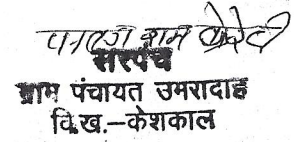 राम
सरपंच
ग्राम पंचायत उमरादाह
वि.ख.-केशकाल